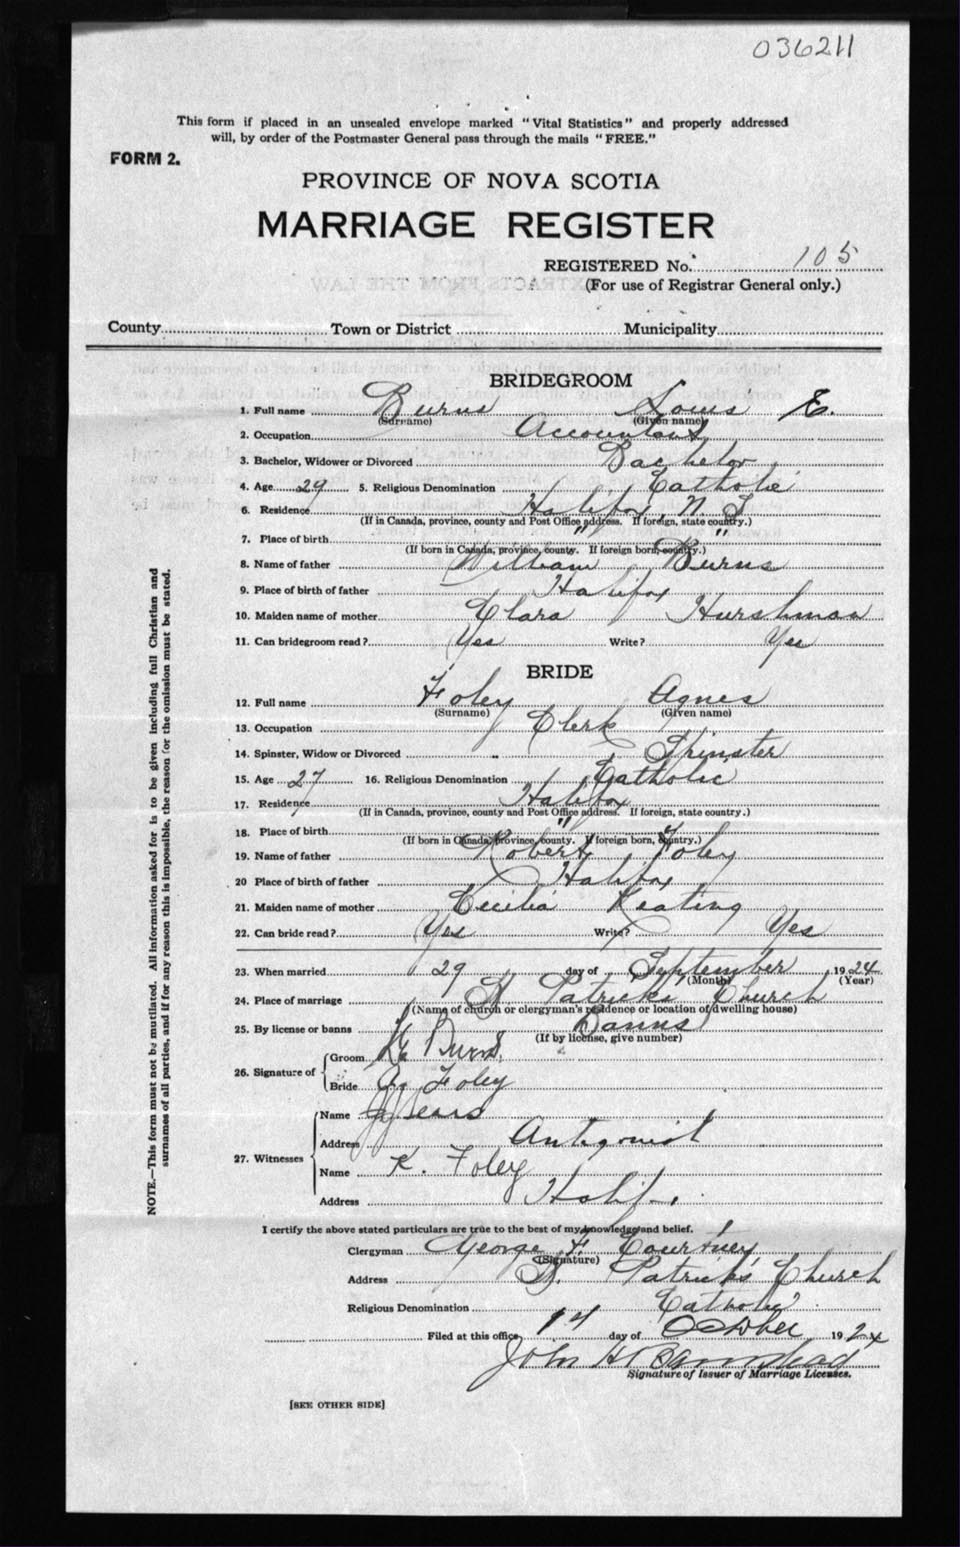 036211
This form if placed in an unsealed envelope marked "Vital Statistics" and properly addressed
will, by order of the Postmaster General pass through the mails "FREE."
FORM 2.
PROVINCE OF NOVA SCOTIA
MARRIAGE REGISTER
REGISTERED No. 105
(For use of Registrar General only.)
County Town or District Municipality
BRIDEGROOM
1. Full name Burns Louis E.
(Surname) (Given name)
2. Occupation Accountant
3. Bachelor, Widower or Divorced Bachelor
4. Age 29 5. Religious Denomination Catholic
6. Residence Halifax, N. S
(If in Canada, province, county and Post Office address. If foreign, state country.)
7. Place of birth " "
(If born in Canada, province, county. If foreign born, country.)
8. Name of father William Burns
9. Place of birth of father Halifax
10. Maiden name of mother Clara Hurshman
11. Can bridegroom read? Yes Write? Yes
BRIDE
12. Full name Foley Agnes
(Surname) (Given name)
13. Occupation Clerk
14. Spinster, Widow or Divorced Spinster
15. Age 27 16. Religious Denomination Catholic
17. Residence Halifax
(If in Canada, province, county and Post Office address. If foreign, state country.)
18. Place of birth "
(If born in Canada, province, county. If foreign born, country.)
19. Name of father Robert Foley
20 Place of birth of father Halifax
21. Maiden name of mother Cecilia Keating
22. Can bride read? Yes Write? Yes
23. When married 29 day of September 1924
(Month) (Year)
24. Place of marriage St Patrick's Church
(Name of church or clergyman's residence or location of dwelling house)
25. By license or banns Banns
(If by license, give number)
26. Signature of
Groom L E Burns.
Bride A. Foley
27. Witnesses
Name Sears
Address Antigonish
Name K. Foley
Address Halif.
I certify the above stated particulars are true to the best of my knowledge and belief.
Clergyman George F. Courtney
(Signature)
Address St. Patrick's Church
Religious Denomination Catholic
Filed at this office 14 day of October 1924
John H Barnstead
Signature of Issuer of Marriage Licenses.
[SEE OTHER SIDE]
NOTE.—This form must not be mutilated. All information asked for is to be given including full Christian and
surnames of all parties, and if for any reason this is impossible, the reason for the omission must be stated.